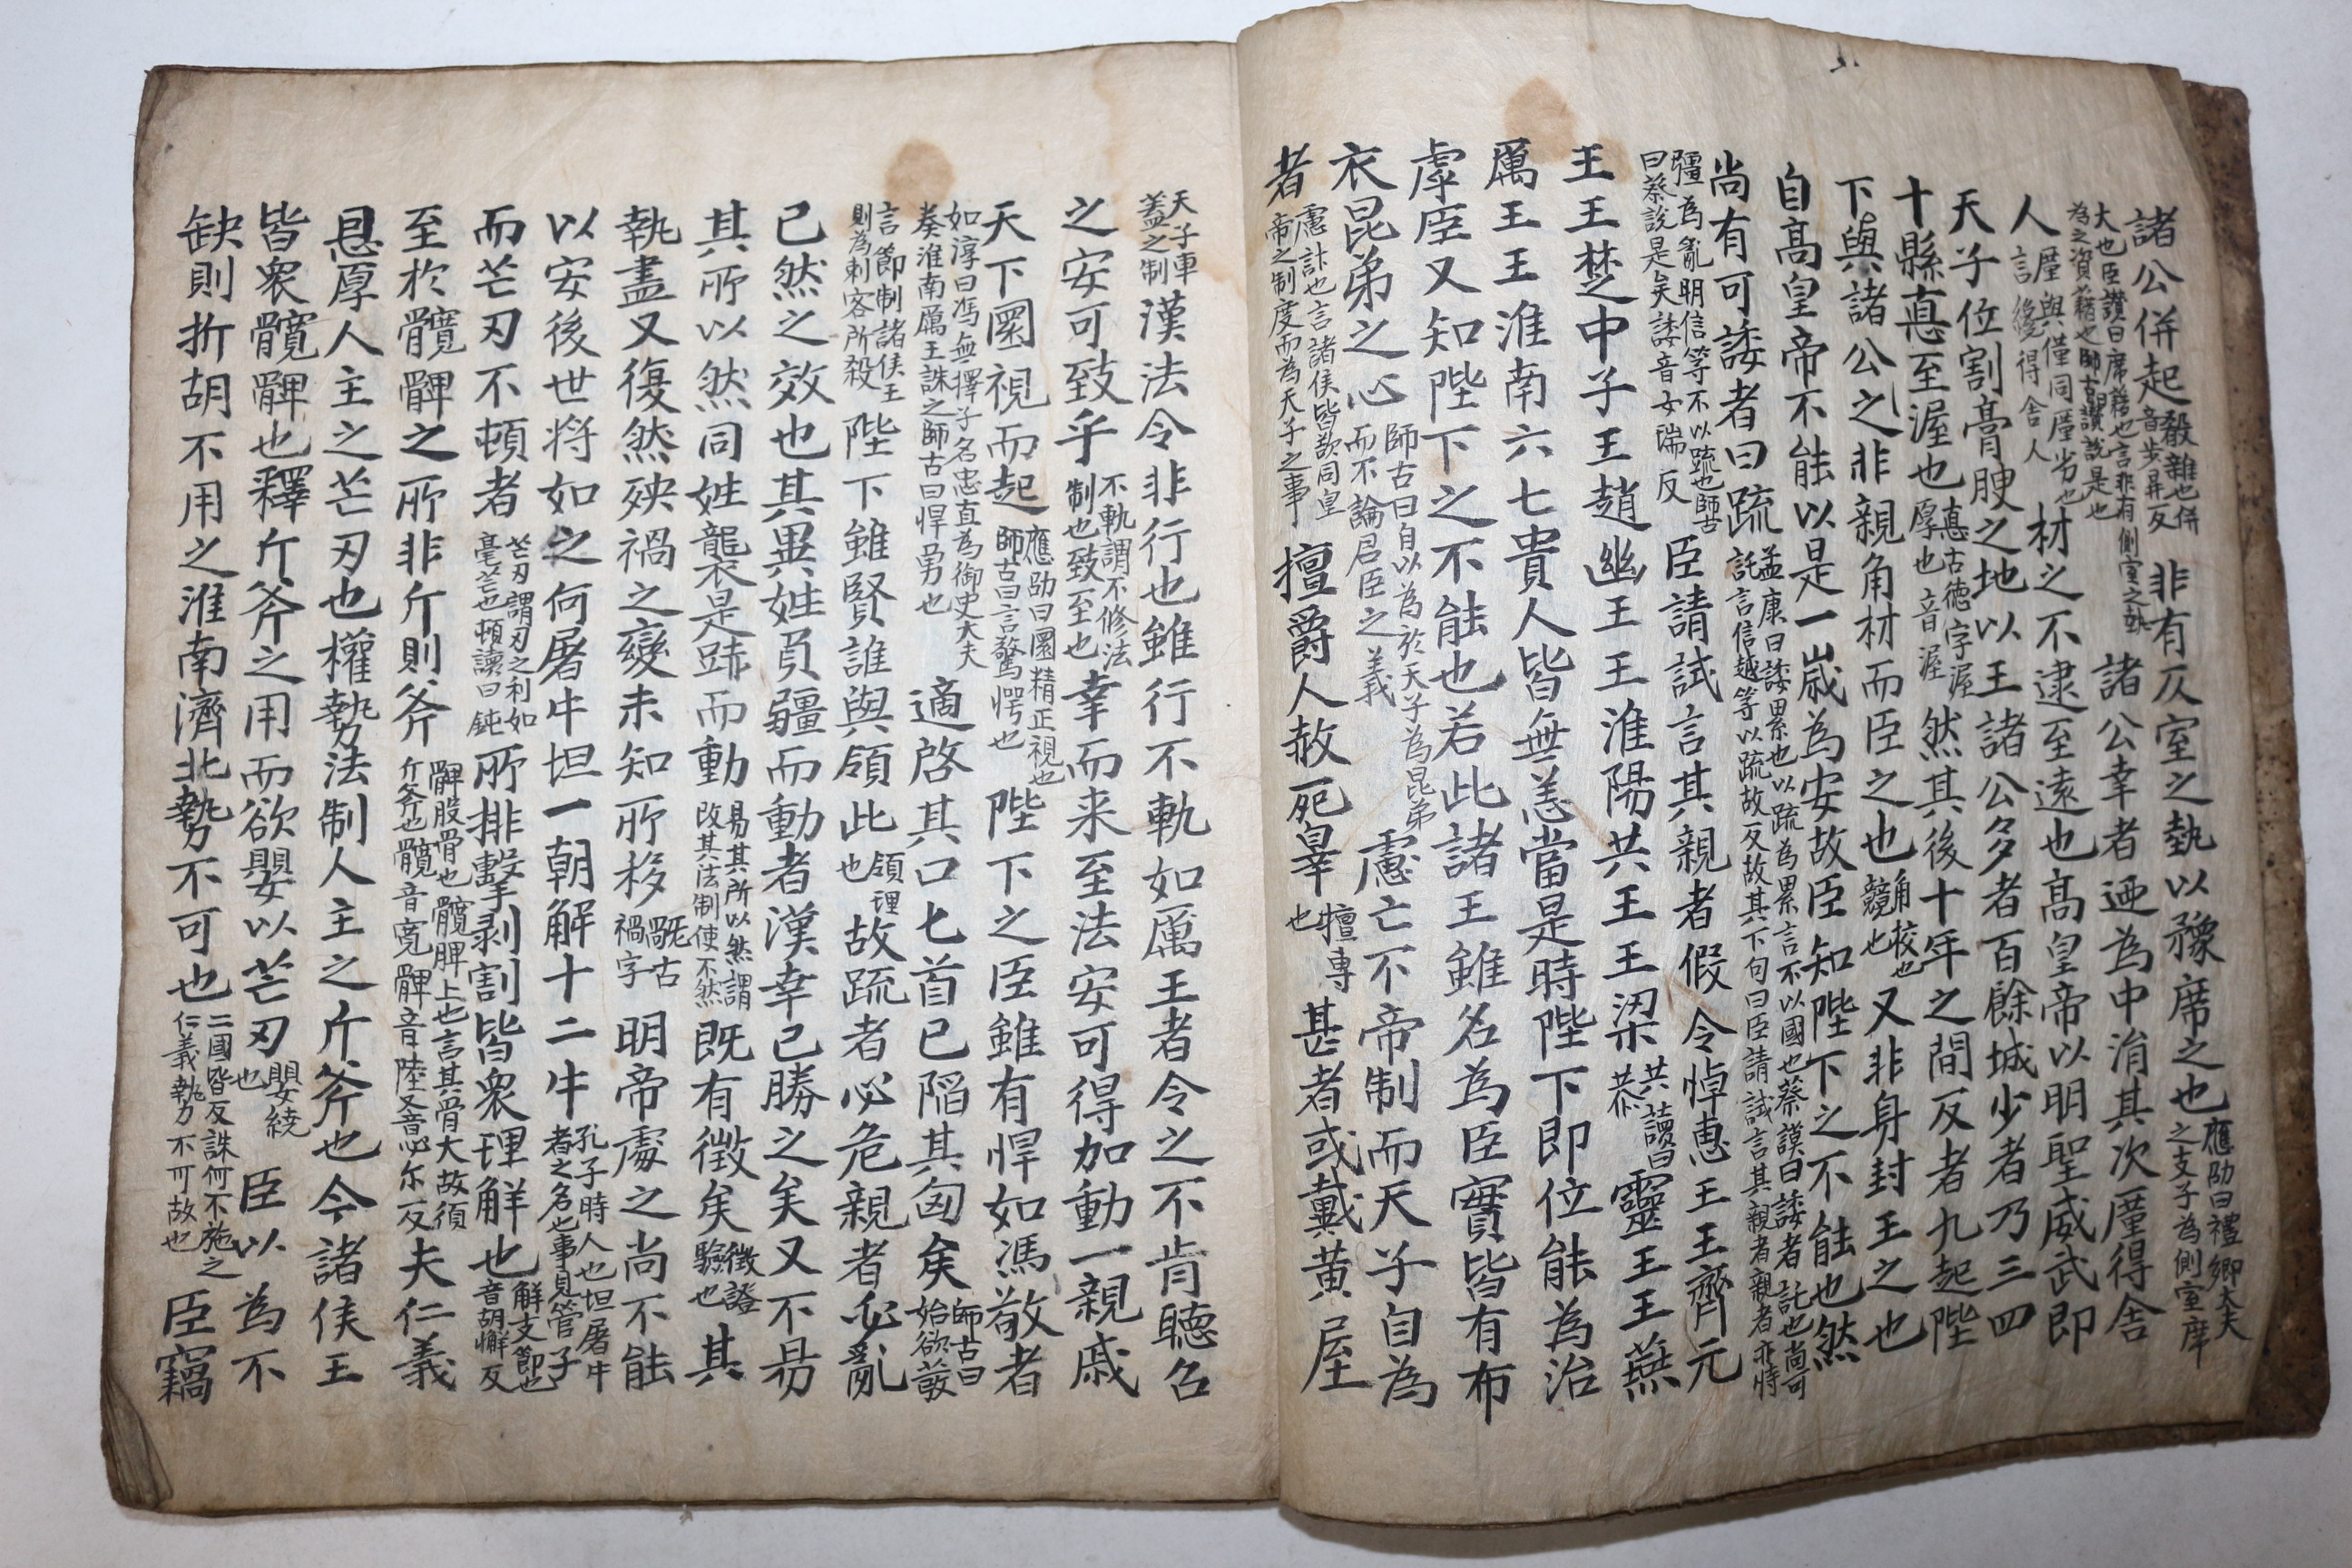 諸公併起殽雜也併音步昇反非有仄室之埶以豫席之也應劭曰禮卿大夫之支子為側室席
大也臣瓚曰席藉也言非有側室之埶為之資藉也師古曰瓚說是也諸公幸者迺為中涓其次廑得舍
人廑與僅同廑劣也言纔得舍人材之不逮至遠也高皇帝以明聖威武即
天子位割膏腴之地以王諸公多者百餘城少者乃三四
十縣悳至渥也悳古德字渥厚也音渥然其後十年之間反者九起陛
下與諸公之非親角材而臣之也角校也競也又非身封王之也
自高皇帝不能以是一歲為安故臣知陛下之不能也然
尚有可諉者曰疏孟康曰諉累也以疏為累言不以國也蔡謨曰諉者託也尚可託言信越等以疏故反故其下句曰臣請試言其親者親者亦恃
彊為亂明信等不以疏也師古曰蔡說是矣諉音女瑞反臣請試言其親者假令悼惠王王齊元
王王楚中子王趙幽王王淮陽共王王梁共讀曰恭靈王王燕
厲王王淮南六七貴人皆無恙當是時陛下即位能為治
虖臣又知陛下之不能也若此諸王雖名為臣實皆有布
衣昆弟之心師古曰自以為於天子為昆弟而不論君臣之義慮亡不帝制而天子自為
者慮計也言諸侯皆欲同皇帝之制度而為天子之事擅爵人赦死辠擅專也甚者或戴黃屋
天子車蓋之制漢法令非行也雖行不軌如厲王者令之不肯聽召
之安可致乎不軌謂不修法制也致至也幸而来至法安可得加動一親戚
天下圜視而起應劭曰圜精正視也師古曰言驚愕也陛下之臣雖有悍如馮敬者
如淳曰馮無擇子名忠直為御史大夫奏淮南厲王誅之師古曰悍勇也適啓其口匕首已陷其匈矣師古曰始欲發
言節制諸侯王則為刺客所殺陛下雖賢誰與領此領理也故疏者必危親者必亂
已然之效也其異姓負彊而動者漢幸已勝之矣又不易
其所以然同姓襲是跡而動易其所以然謂改其法制使不然既有徵矣徵證驗也其
執盡又復然殃禍之變未知所移旤古禍字明帝處之尚不能
以安後世将如之何屠牛坦一朝解十二牛孔子時人也坦屠牛者之名也事見管子
而芒刃不頓者芒刃謂刃之利如毫芒也頓讀曰鈍所排擊剥割皆衆理解也解支節也音胡懈反
至於髖髀之所非斤則斧髀股骨也髖髀上也言其骨大故須斤斧也髖音寬髀音陛又音必尔反夫仁義
恩厚人主之芒刃也權勢法制人主之斤斧也今諸侯王
皆衆髖髀也釋斤斧之用而欲嬰以芒刃嬰繞也臣以為不
缺則折胡不用之淮南濟北勢不可也二國皆反誅何不施之仁義執力不可故也臣竊